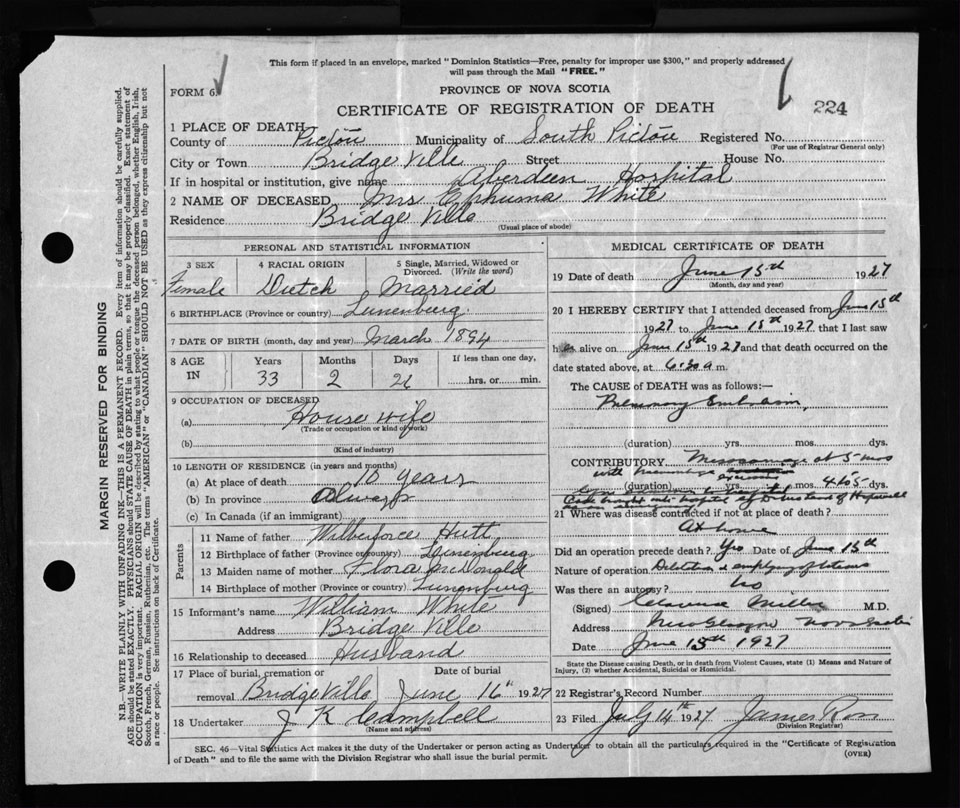 This form if placed in an envelope, marked "Dominion Statistics—Free, penalty for improper use $300," and properly addressed
will pass through the Mail "FREE."
FORM 6.
PROVINCE OF NOVA SCOTIA
CERTIFICATE OF REGISTRATION OF DEATH
224
1 PLACE OF DEATH
County of Pictou Municipality of South Pictou Registered No.
(For use of Registrar General only)
City or Town Bridge Ville Street House No.
If in hospital or institution, give name Aberdeen Hospital
2 NAME OF DECEASED Mrs White
Residence Bridge Ville
(Usual place of abode)
PERSONAL AND STATISTICAL INFORMATION
3 SEX 4 RACIAL ORIGIN 5 Single, Married, Widowed or
Divorced. (Write the word)
Female Dutch Married
6 BIRTHPLACE (Province or country) Lunenburg
7 DATE OF BIRTH (month, day and year) March 1894
8 AGE IN Years Months Days If less than one day,
33 2 26 hrs. or min.
9 OCCUPATION OF DECEASED
(a) House wife
(Trade or occupation or kind of work)
(b)
(Kind of industry)
10 LENGTH OF RESIDENCE (in years and months)
(a) At place of death 10 years
(b) In province Always
(c) In Canada (if an immigrant)
Parents
11 Name of father Wilberforce Hutt
12 Birthplace of father (Province or country) Lunenburg
13 Maiden name of mother Flora McDonald
14 Birthplace of mother (Province or country) Lunenburg
15 Informant's name William White
Address Bridge Ville
16 Relationship to deceased Husband
17 Place of burial, cremation or Date of burial
removal Bridge Ville June 16th 1927
18 Undertaker J K Campbell
(Name and address)
MEDICAL CERTIFICATE OF DEATH
19 Date of death June 15th 1927
(Month, day and year)
20 I HEREBY CERTIFY that I attended deceased from June 15th
1927 to June 15th 1927 that I last saw
h alive on June 15th 1927 and that death occurred on the
date stated above, at 6:30 a m.
The CAUSE of DEATH was as follows:—
Pulmonary Embolism,
(duration) yrs. mos. dys.
CONTRIBUTORY Miscarriage at 5 mos
with
(duration) yrs. mos. 4 to 5 dys.
21 Where was disease contracted if not at place of death?
At home
Did an operation precede death? Yes Date of June 15th
Nature of operation Dilatation & emptying of uterus
Was there an autopsy? No
(Signed) Clarence Miller M.D.
Address New Glasgow Nova Scotia
Date June 15th 1927
State the Disease causing Death, or in death from Violent Causes, state (1) Means and Nature of
Injury, (2) whether Accidental, Suicidal or Homicidal.
22 Registrar's Record Number
23 Filed July 14th 1927 James Ross
(Division Registrar)
SEC. 46—Vital Statistics Act makes it the duty of the Undertaker or person acting as Undertaker to obtain all the particulars required in the "Certificate of Registration
of Death" and to file the same with the Division Registrar who shall issue the burial permit. (OVER)
MARGIN RESERVED FOR BINDING
N.B.—WRITE PLAINLY WITH UNFADING INK—THIS IS A PERMANENT RECORD. Every item of information should be carefully supplied.
AGE should be stated EXACTLY. PHYSICIANS should STATE CAUSE OF DEATH in plain terms, so that it may be properly classified. Exact statement of
OCCUPATION is very important. RACIAL ORIGIN will be described by stating to what people or tongue the deceased person belonged, whether English, Irish,
Scotch, French, German, Russian, Ruthenian, etc. The terms "AMERICAN" or "CANADIAN" SHOULD NOT BE USED as they express citizenship but not
a race or people. See instructions on back of Certificate.